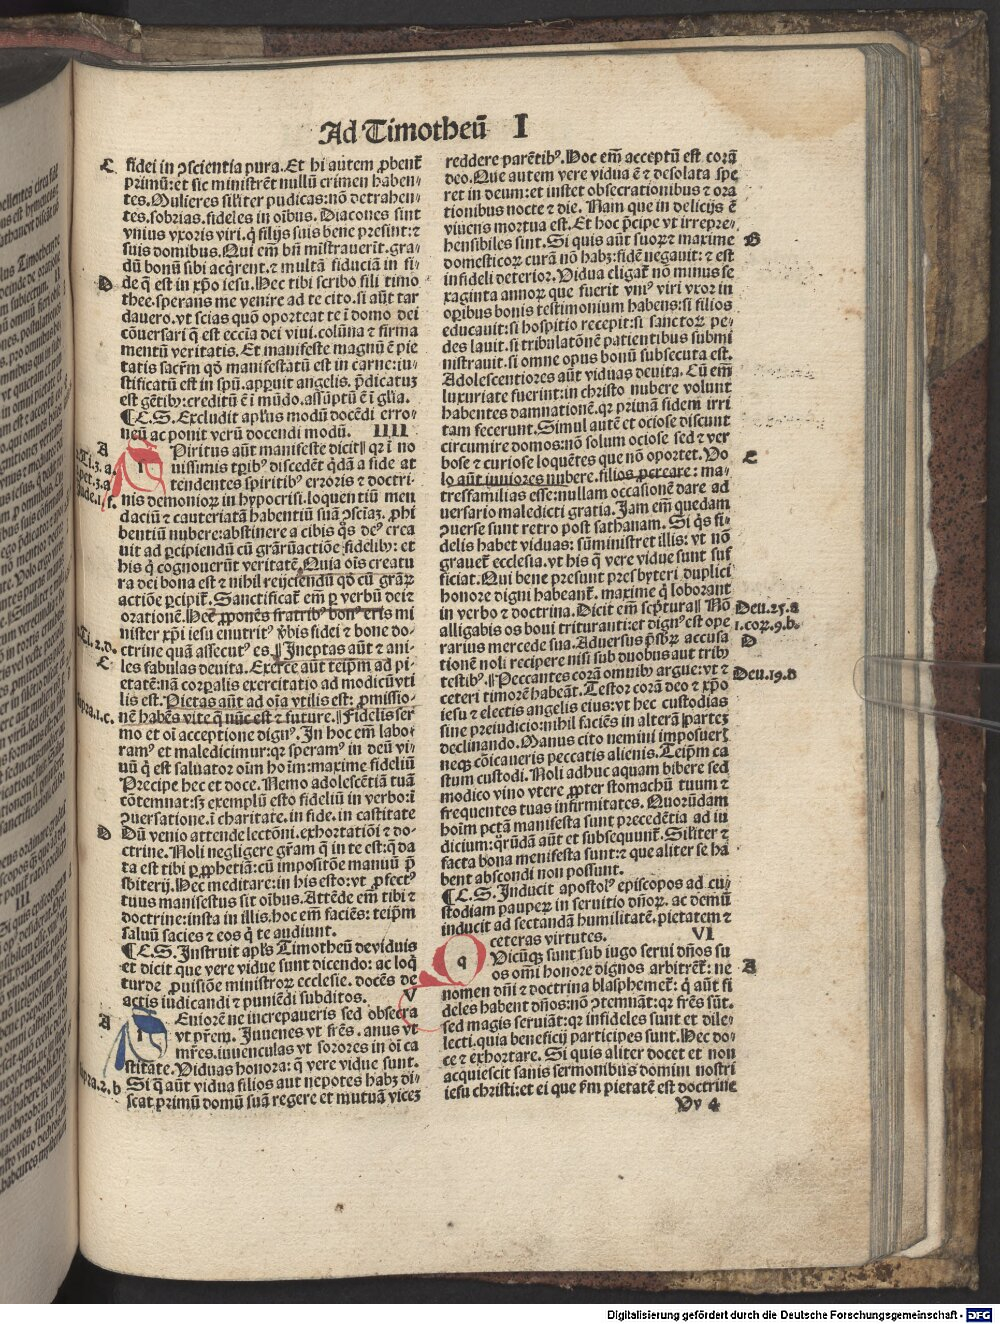 Ad Timotheū I
C fidei in ꝯscientia pura. Et hi autem ꝓbent᷑
primū: et sic ministrēt nullū crimen haben⸗
tes. Mulieres siliter pudicas: nō detrahen⸗
tes. sobrias. fideles in oībus. Diacones sint
vnius vxoris viri. q̇ filijs suis bene presint: ⁊
suis domibus. Qui em̄ bn̄ mīstrauerīt. gra⸗
dū bonū sibi acq̇rent. ⁊ multā fiduciā in fi⸗
D de q̄ est in xp̄o iesu. Hec tibi scribo fili timo
thee. sperans me venire ad te cito. si aūt tar
dauero. vt scias quō oporteat te ī domo dei
cōuersari q̄ est eccīa dei viui. colūna ⁊ firma
mentū veritatis. Et manifeste magnū ē pie
tatis sacr̄m qd̄ manifestatū est in carne: iu⸗
stificatū est in spū. apꝑuit angelis. p̄dicatuꝫ
est gētibꝰ: creditū ē ī mūdo. assūptū ē ī gl̄ia.
¶ L. S. Excludit apl̄us modū docēdi erro⸗
neū ac ponit verū docendi modū. IIII
A Piritus aūt manifeste dicit‖ qꝛ ī no
uissimis tꝑibꝰ discedēt q̇dā a fide at
tendentes spiritibꝰ erroris ⁊ doctri⸗
nis demonioꝝ in hypocrisi. loquentiū men
daciū ⁊ cauteriatā habentiū suā ꝯsciaꝫ. ꝓhi
bentiū nubere: abstinere a cibis qͦs deꝰ crea
uit ad ꝑcipiendū cū grāꝝ actiōe fidelibꝰ: et
his q̇ cognouerūt veritatē. Quia oīs creatu
ra dei bona est ⁊ nihil reijciendū qd̄ cū grāꝝ
actiōe ꝑcipit᷑. Sanctificat᷑ em̄ ꝑ verbū dei ⁊
orationē. Hec ꝓponēs fratribꝰ bonꝰ eris mi
nister xp̄i iesu enutritꝰ v̄bis fidei ⁊ bone do⸗
ctrine quā assecutꝰ es.‖ Ineptas aūt ⁊ ani⸗
C les fabulas deuita. Exerce aūt teip̄m ad pi⸗
etatē: nā corꝑalis exercitatio ad modicū vti
lis est. Pietas aūt ad oīa vtilis est: ꝓmissio⸗
nē habēs vite q̄ nūc est ⁊ future.‖ Fidelis ser
mo et oī acceptione dignꝰ. In hoc em̄ labo⸗
ramꝰ et maledicimur: qꝛ speramꝰ in deū vi⸗
uū q̇ est saluator oīm hoīm: maxime fideliū
Precipe hec et doce. Nemo adolescētiā tuā
cōtemnat: sꝫ exemplū esto fideliū in verbo: ī
ꝯuersatione. ī charitate. in fide. in castitate
D Dū venio attende lectōni. exhortatiōi ⁊ do⸗
ctrine. Noli negligere gr̄am q̄ in te est: q̄ da
ta est tibi ꝑ ꝓphetiā: cū impositōe manuū p̄
sbiterij. Hec meditare: in his esto: vt ꝓfectꝰ
tuus manifestus sit oībus. Attēde em̄ tibi ⁊
doctrine: insta in illis. hoc em̄ faciēs: teip̄m
saluū facies ⁊ eos q̇ te audiunt.
¶ L. S. Instruit apl̄s Timotheū de viduis
et dicit que vere vidue sunt dicendo: ac loq̇
tur de ꝓuisiōe ministroꝝ ecclesie. docēs de
actis iudicandi ⁊ puniēdi subditos. V
A Eniorē ne increpaueris sed obsecra
vt pr̄em. Iuuenes vt fr̄es. anus vt
mr̄es. iuuenculas vt sorores in oī ca
stitate. Viduas honora: q̄ vere vidue sunt.
Si q̄ aūt vidua filios aut nepotes habꝫ di⸗
scat primū domū suā regere et mutuā viceꝫ
reddere parētibꝰ. Hoc em̄ acceptū est corā
deo. Que autem vere vidua ē ⁊ desolata spe
ret in deum: et instet obsecrationibus ⁊ ora
tionibus nocte ⁊ die. Nam que in delicijs ē
viuens mortua est. Et hoc p̄cipe vt irrepre⸗
hensibiles sint. Si quis aūt suoꝝ ⁊ maxime B
domesticoꝝ curā nō habꝫ: fidē negauit: ⁊ est
infideli deterior. Vidua eligat᷑ nō minus se
xaginta annoꝝ que fuerit vniꝰ viri vxor in
oꝑibus bonis testimonium habens: si filios
educauit: si hospitio recepit: si sanctoꝝ pe⸗
des lauit. si tribulatōnē patientibus submi
nistrauit. si omne opus bonū subsecuta est.
Adolescentiores aūt viduas deuita. Cū em̄
luxuriate fuerint: in christo nubere volunt
habentes damnationē. qꝛ primā fidem irri
tam fecerunt. Simul autē et ociose discunt
circumire domos: nō solum ociose sed ⁊ ver
bose ⁊ curiose loquētes que nō oportet. Vo C
lo aūt iuniores nubere. filios ꝓcreare: ma⸗
tresfamilias esse: nullam occasionē dare ad
uersario maledicti gratia. Iam em̄ quedam
ꝯuerse sunt retro post sathanam. Si q̇s fi⸗
delis habet viduas: sūministret illis: vt nō
grauet᷑ ecclesia. vt his q̄ vere vidue sunt suf
ficiat. Qui bene presunt presbyteri duplici
honore digni habeant᷑. maxime q̇ laborant
in verbo ⁊ doctrina. Dicit em̄ scp̄tura‖ Nō Deu. 25. a
alligabis os boui trituranti: et dignꝰ est ope 1. cor. 9. b
rarius mercede sua. Aduersus p̄sbꝝ accusa D
tionē noli recipere nisi sub duobus aut tribꝰ
testibꝰ.‖ Peccantes corā omnibꝰ argue: vt ⁊ Deu. 19. d
ceteri timorē habeāt. Testor corā deo ⁊ xp̄o
iesu ⁊ electis angelis eius: vt hec custodias
sine preiudicio: nihil faciēs in alterā parteꝫ
declinando. Manus cito nemini imposuerꝭ
neqꝫ cōicaueris peccatis alienis. Teip̄m ca
stum custodi. Noli adhuc aquam bibere sed
modico vino vtere ꝓpter stomachū tuum ⁊
frequentes tuas infirmitates. Quorūdam
hoīm pctā manifesta sunt precedētia ad iu
dicium: qͦrūdā aūt et subsequunt᷑. Siliter ⁊
facta bona menifesta sunt: ⁊ que aliter se hn̄
bent abscondi non possunt.
¶ L. S. Inducit apostolꝰ episcopos ad cu⸗
stodiam pauperꝝ in seruitio dn̄oꝝ. ac demū
inducit ad sectandā humilitatē. pietatem ⁊
ceteras virtutes. VI
q Vicūqꝫ sunt sub iugo serui dn̄os su A
os om̄i honore dignos arbitrēt᷑: ne
nomen dn̄i ⁊ doctrina blasphemet᷑: q̇ aūt fi
deles habent dn̄os: nō ꝯtemnāt: qꝛ fr̄es sūt.
sed magis seruiāt: qꝛ infideles sunt et dile⸗
lecti. quia beneficij participes sunt. Hec do⸗
ce ⁊ exhortare. Si quis aliter docet et non
acquiescit sanis sermonibus domini nostri
iesu christi: et ei que ẜm pietatē est doctrine
Digitalisierung gefördert durch die Deutsche Forschungsgemeinschaft - DFG